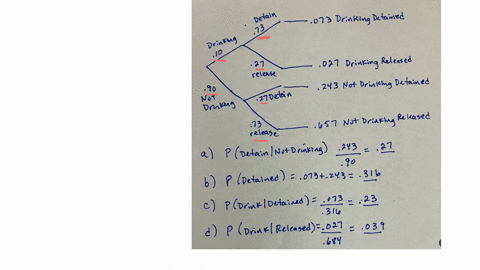 Detain
.73
.073 Drinking Detained
Drinking
.10
.27
release
.027 Drinking Released
.90
Not
Drinking
.27 Detain
.243 Not Drinking Detained
.73
release
.657 Not Drinking Released
a) P(Detain/Not Drinking) .243/.90 = .27
b) P(Detained) = .073+.243 = .316
c) P(Drink/Detained) = .073/.316 = .23
d) P(Drink/Released) = .027/.684 = .039